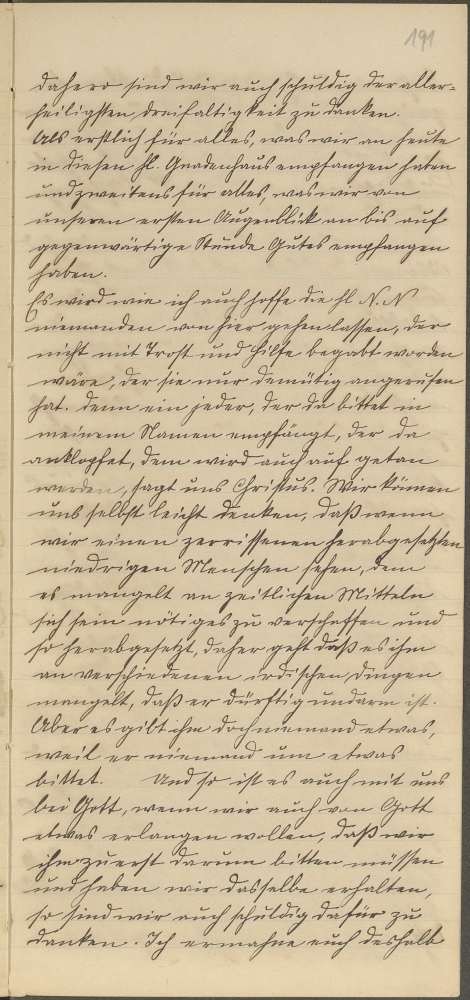 191
dahero sind wir auch schuldig der aller-
heiligsten dreifaltigkeit zu danken.
Als erstlich für alles, was wir an heute
in diesen hl. Gnadenhaus empfangen haben
und zweitens für alles, was wir von
unseren ersten Augenblick an bis auf
gegenwärtige Stunde Gutes empfangen
haben.
Es wird wie ich auch hoffe die hl N. N
niemanden von hier gehen lassen, der
nicht mit Trost und Hilfe begabt worden
wäre, der sie nur demütig angerufen
hat. denn ein jeder, der da bittet in
meinem Namen empfängt, der da
anklopfet, dem wird auch auf getan
werden, sagt uns Christus. Wir können
uns selbst leicht denken, daß wenn
wir einen zerrissenen herabgesetzten
niedrigen Menschen sehen, dem
es mangelt an zeitlichen Mitteln
sich sein nötiges zu verschaffen und
so herabgesetzt, daher geht daß es ihm
an verschiedenen irdischen dingen
mangelt, daß er dürftig und arm ist.
Aber es gibt ihm doch niemand etwas,
weil er niemand um etwas
bittet. Und so ist es auch mit uns
bei Gott, wenn wir auch von Gott
etwas erlangen wollen, daß wir
ihn zuerst darum bitten müssen
und haben wir dasselbe erhalten,
so sind wir auch schuldig dafür zu
danken. Ich ermahne euch deshalb